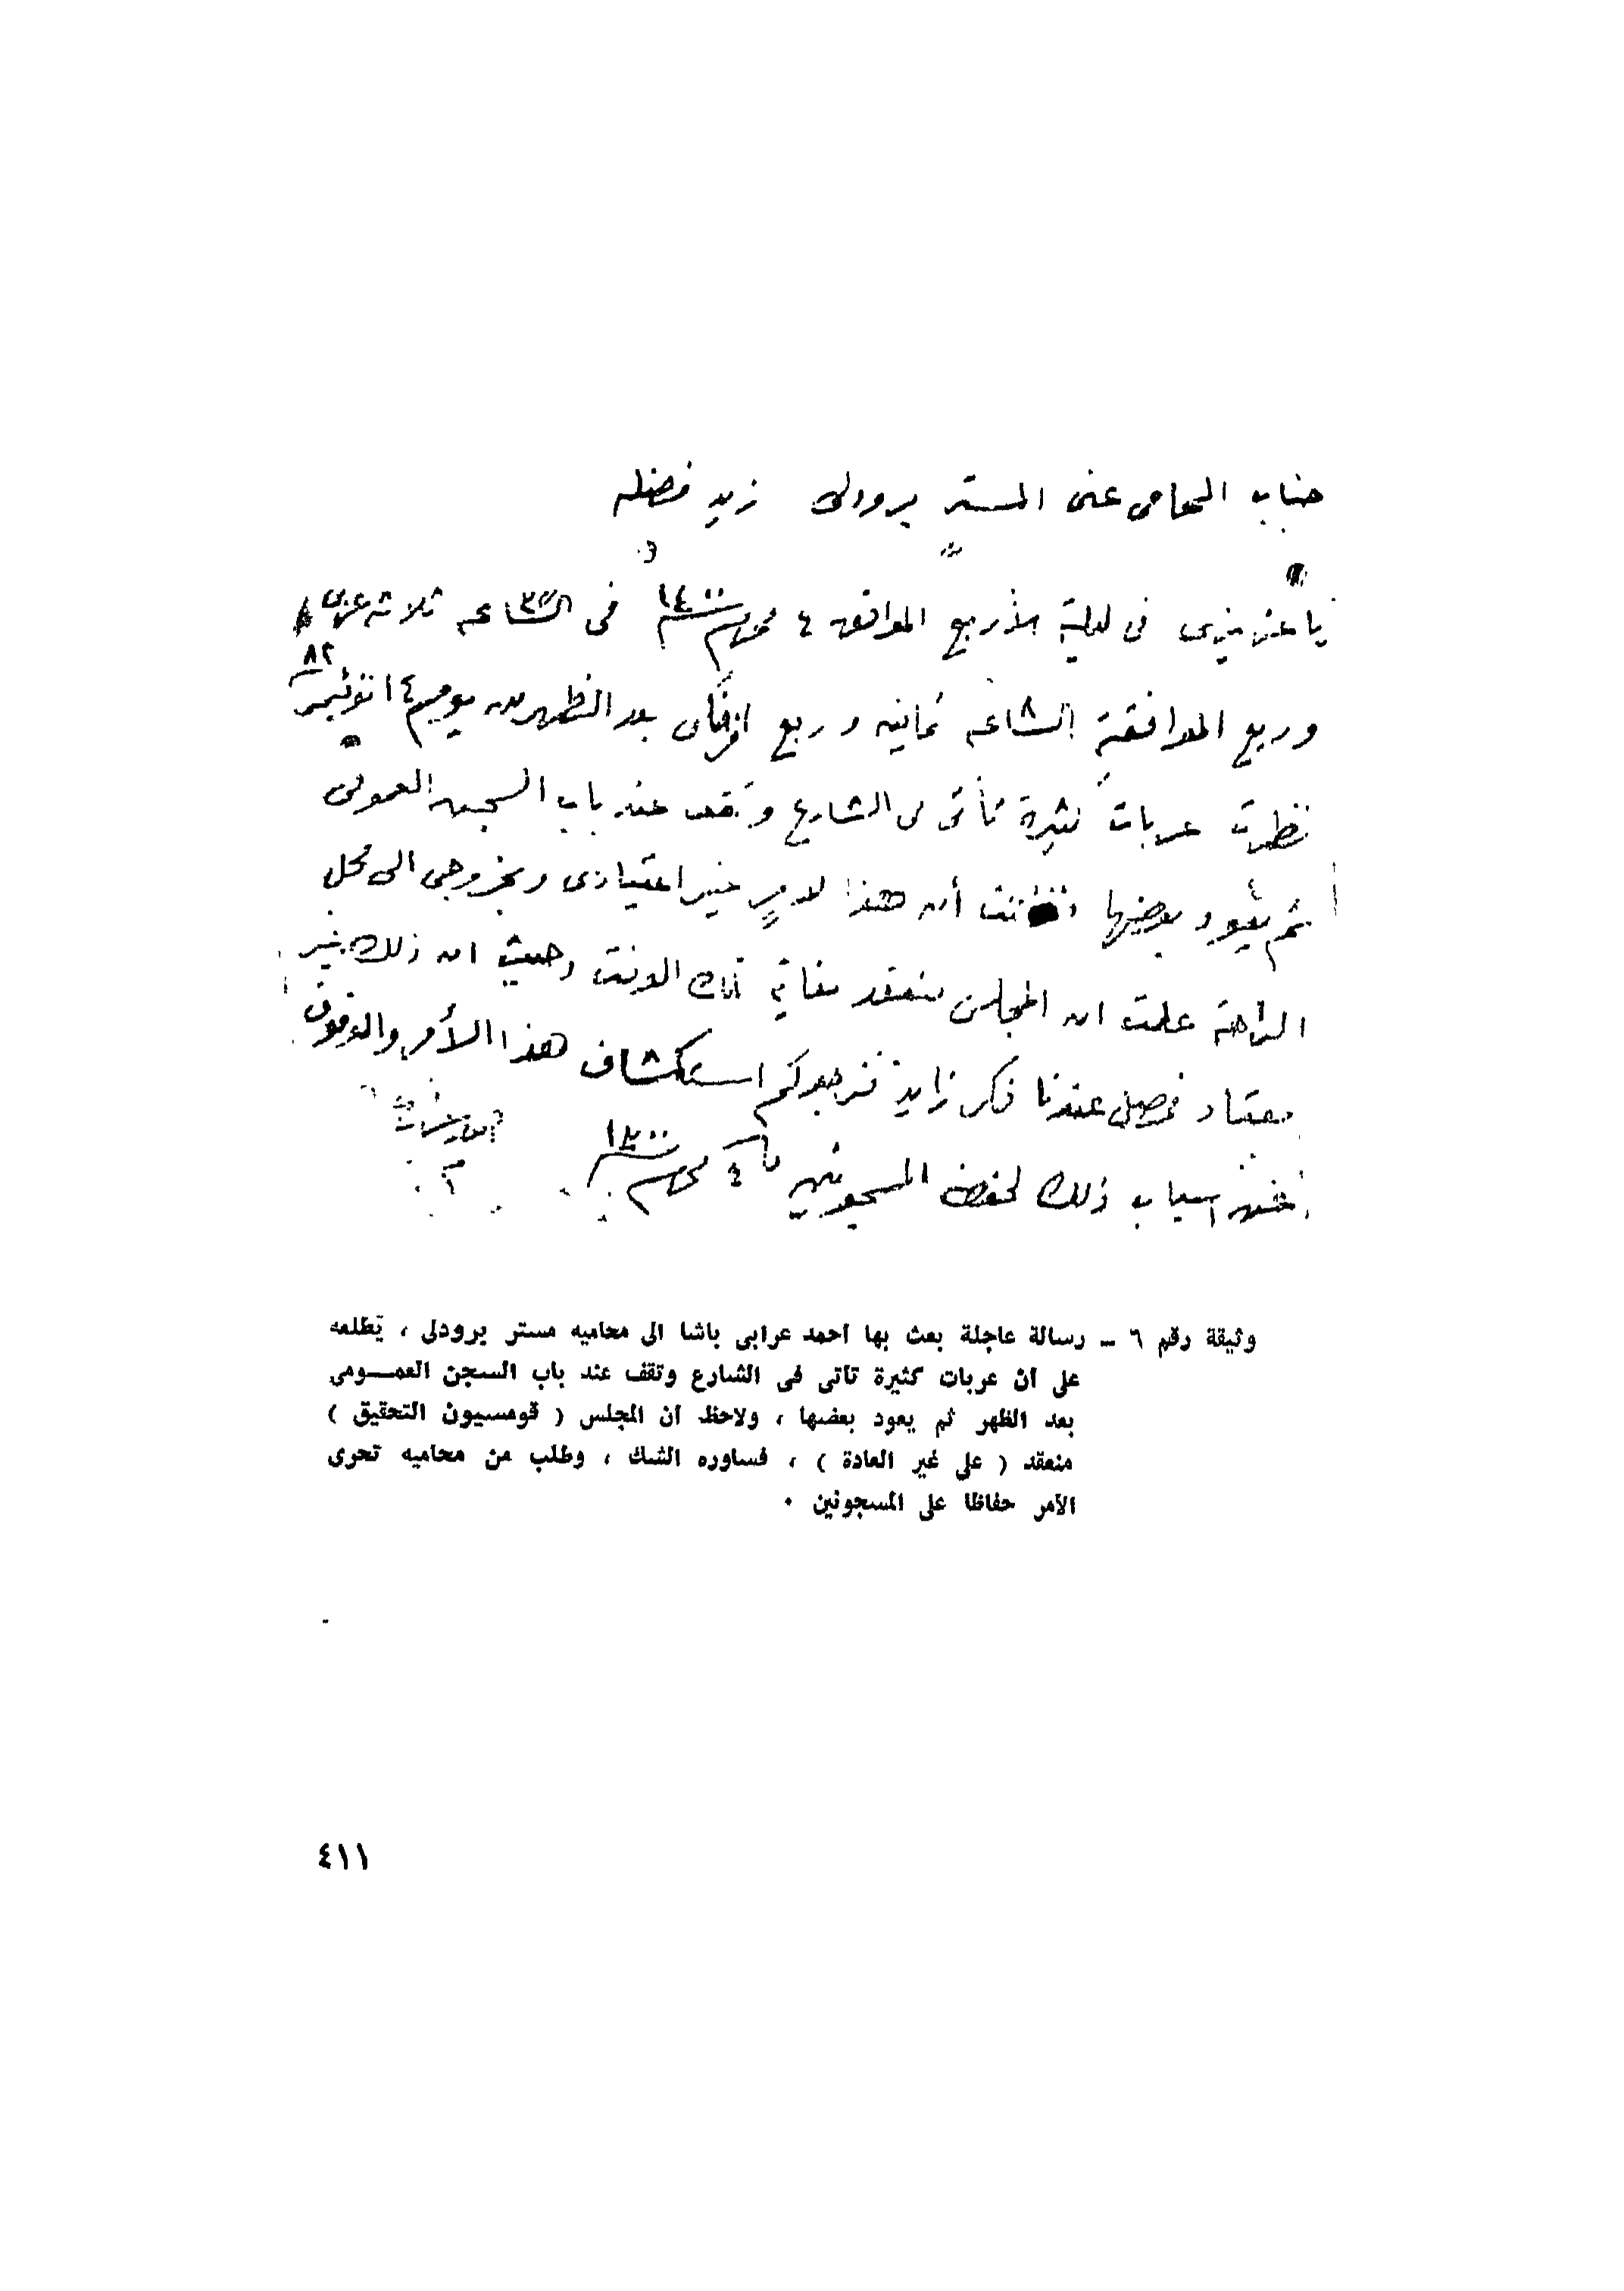 جناب المحامى عنى المستر برودلى زيد فضله
يا عزيزى فى ليلة الأربع الموافق ٤ محرم فى الساعه ثلاثه عربى
وربع الموافقة الساعه ثمانيه وربع افرنكى بعد الظهر من يوم ١٤ نوفمبر ٨٢
نظرت عربات كثيرة تأتى فى الشارع وتقف عند باب السجن العمومى
ثم يعود بعضها فظننت أن هذا لامرٍ غير اعتيادى وبخروجى الى محل
الراحة علمت ان المجلس منعقد فى تلك الوقت وحيث ان ذلك غير
معتاد فحصل عندنا فكر زايد فنرجوكم استكشاف هذا الأمر والوقوف
عن اسباب ذلك لحفظ المسجونين ٤ محرم ١٣٠٠
وثيقة رقم ٦ ــ رسالة عاجلة بعث بها احمد عرابى باشا الى محاميه مستر برودلى ، يطلعه
على ان عربات كثيرة تأتى فى الشارع وتقف عند باب السجن العمـــومى
بعد الظهر ثم يعود بعضها ، ولاحظ ان المجلس ( قومسيون التحقيق )
منعقد ( على غير العادة ) ، فساوره الشك ، وطلب من محاميه تحرى
الأمر حفاظا على المسجونين ٠
٤١١